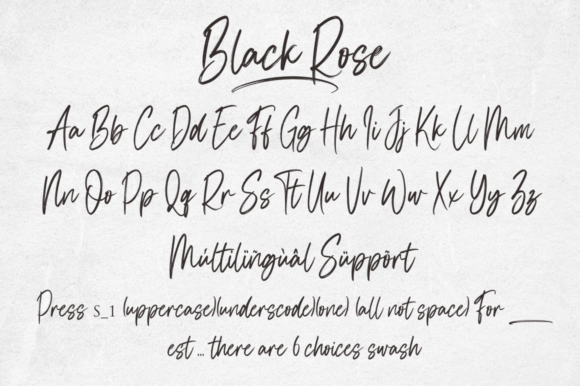 Black Rose
Aa Bb Cc Dd Ee Ff Gg Hh Ii Jj Kk Ll Mm
Nn Oo Pp Qq Rr Ss Tt Uu Vv Ww Xx Yy Zz
Múltilïñgùâl Süppõrt
Press S_1 (uppercase)(underscode)(one) (all not space) For ___
est ... there are 6 choices swash